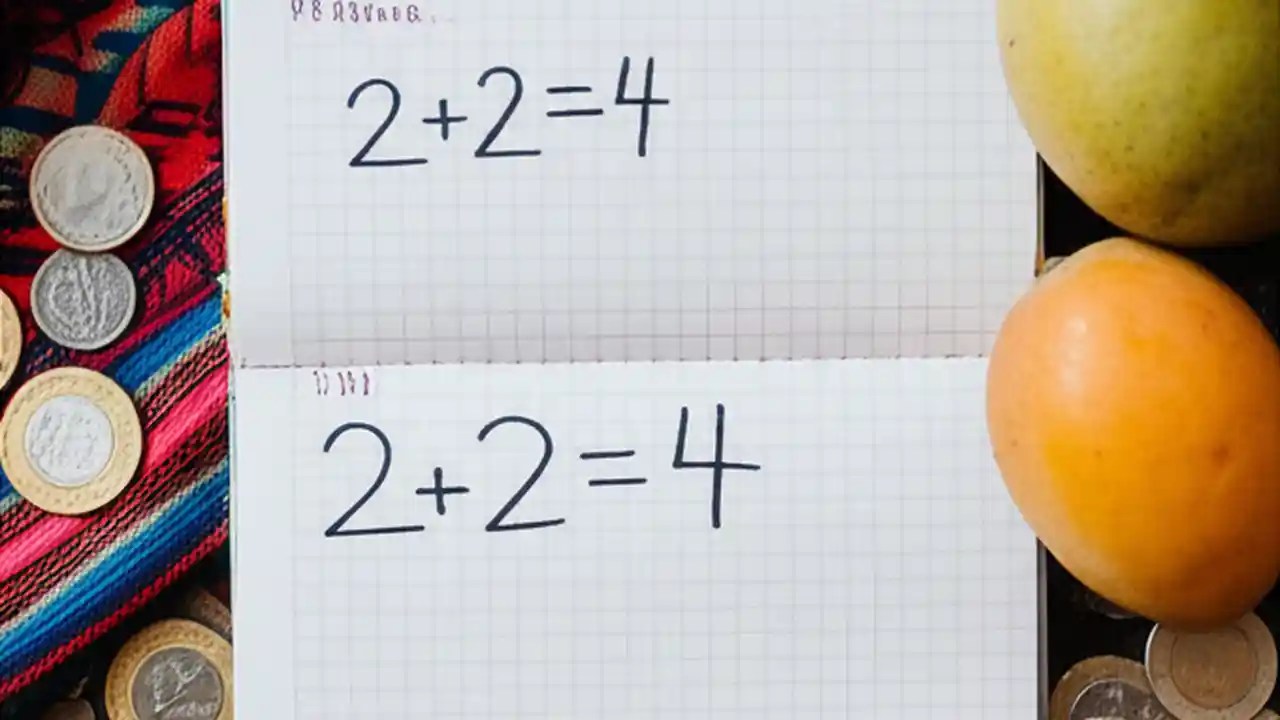 2+2=4
2+2=4